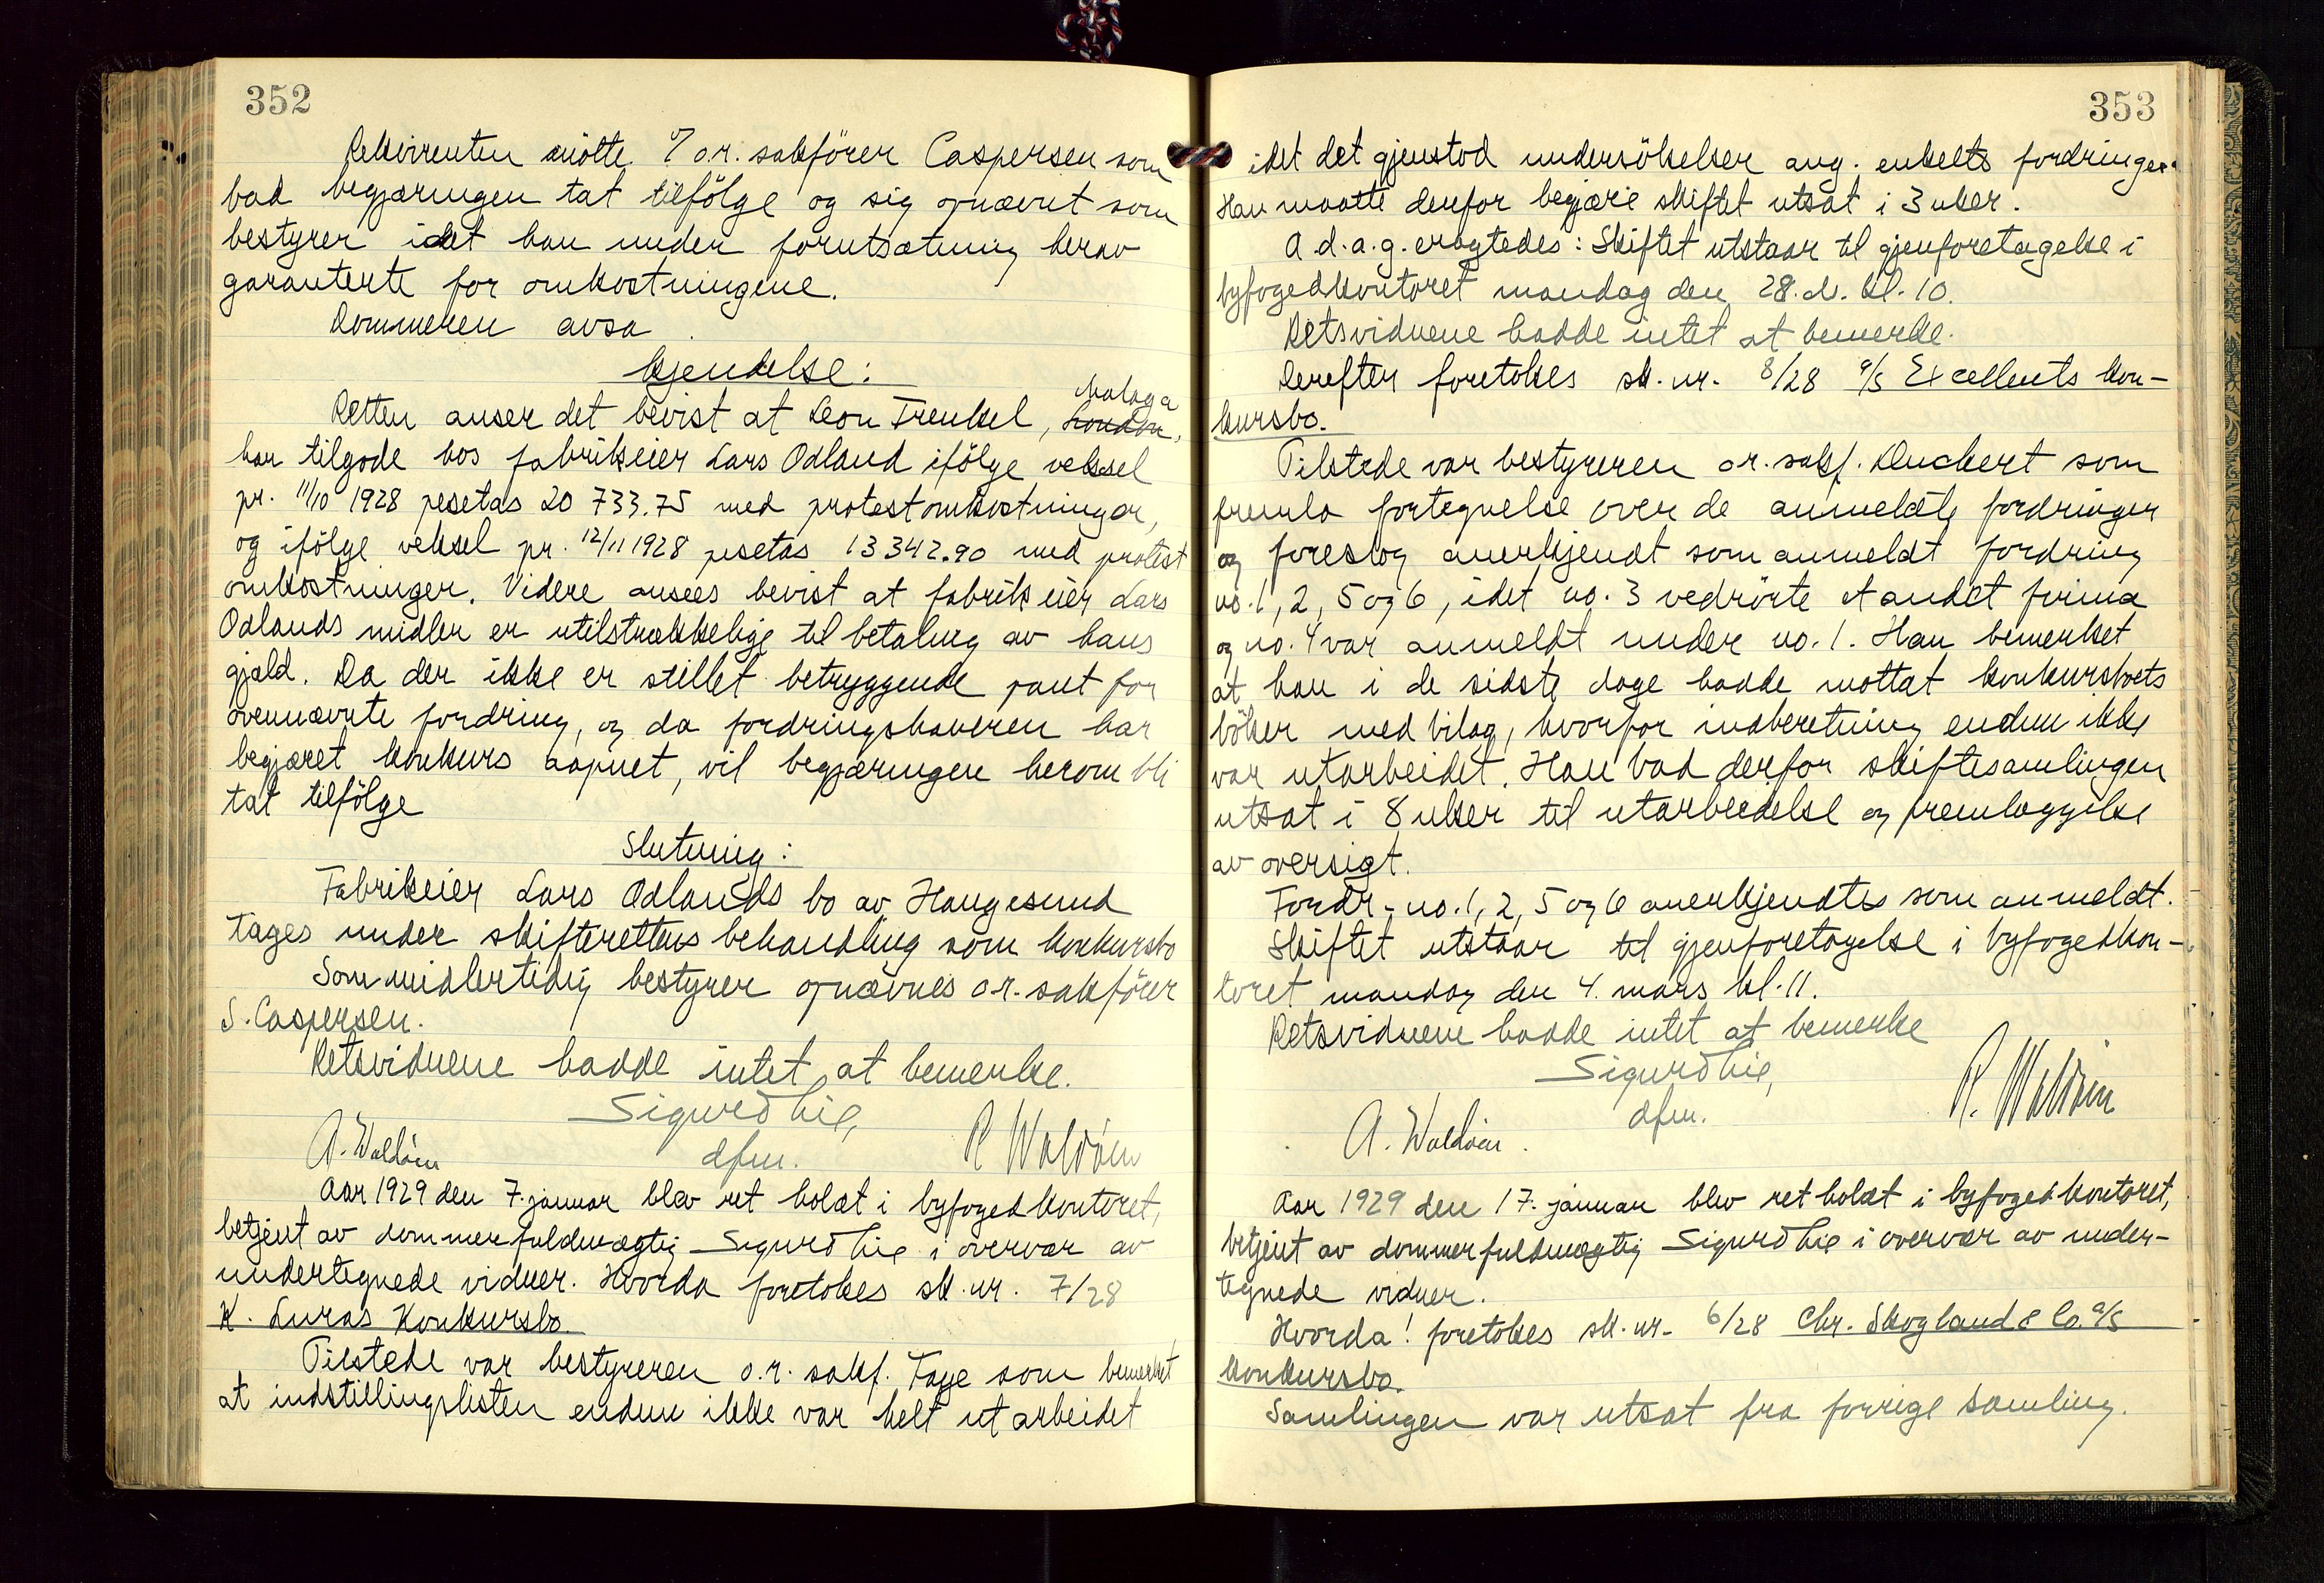 352
Rekvirenten mötte v/ o.r. sakförer Caspersen som
bad begjæringen tat tilfölge og sig opnævnt som
bestyrer idet han under forutsætning herav
garanterte for omkostningene.
Dommeren avsa
kjendelse:
Malaga
Retten anser det bevist at Leon Frenkel, London,
har tilgode hos fabrikeier Lars Odland ifölge veksel
pr. 11/10 1928 pesetas 20 733.75 med protestomkostninger,
og ifölge veksel pr. 12/11 1928 pesetas 13342.90 med protest
omkostninger. Videre ansees bevist at fabrikeier Lars
Odlands midler er utilstrækkelige til betaling av hans
gjæld. Da der ikke er stillet betryggende pant for
ovennævnte fordring, og da fordringshaveren har
begjæret konkurs aapnet, vil begjæringen herom bli
tat tilfölge
Slutning:
Fabrikeier Lars Odlands bo av Haugesund
tages under skifterettens behandling som konkursbo
Som midlertidig bestyrer opnævnes o.r. sakförer
S. Caspersen.
Retsvidnene hadde intet at bemerke.
Sigurd Lie,
A. Waldöen dfm. R Waldöen
Aar 1929 den 7. januar blev ret holdt i byfogedkontoret,
betjent av dommerfuldmægtig Sigurd Lie i overvær av
undertegnede vidner. Hvorda foretokes sk. nr. 7/28
K. Luras Konkursbo.
Tilstede var bestyreren o.r. sakf. Fage som bemerket
at indstillingslisten endnu ikke var helt utarbeidet
353
idet det gjenstod undersökelser ang. enkelte fordringer.
Han maatte derfor begjære skiftet utsat i 3 uker.
A d.a.g. eragtedes: Skiftet utstaar til gjenforetagelse i
byfogedkontoret mandag den 28. ds. kl. 10.
Retsvidnene hadde intet at bemerke.
Derefter foretokes sk. nr. 8/28 a/s Excellents kon-
kursbo.
Tilstede var bestyreren o.r. sakf. Duckert som
fremla fortegnelse over de anmeldte fordringer
og foreslog anerkjendt som anmeldt fordring
no. 1, 2, 5 og 6, idet no. 3 vedrörte et andet firma
og no. 4 var anmeldt under no. 1. Han bemerket
at han i de sidste dage hadde mottat konkursboets
böker med bilag, hvorfor indberetning endnu ikke
var utarbeidet. Han bad derfor skiftesamlingen
utsat i 8 uker til utarbeidelse og fremlæggelse
av oversigt.
Fordr. no. 1, 2, 5 og 6 anerkjendtes som anmeldt.
Skiftet utstaar til gjenforetagelse i byfogedkon-
toret mandag den 4. mars kl. 11.
Retsvidnene hadde intet at bemerke
Sigurd Lie,
A. Waldöen. dfm. R. Waldöen
Aar 1929 den 17. januar blev ret holdt i byfogedkontoret,
betjent av dommerfuldmægtig Sigurd Lie i overvær av under-
tegnede vidner.
Hvorda! foretokes sk. nr. 6/28 Chr. Skogland & Co. a/s
konkursbo.
Samlingen var utsat fra forrige samling.